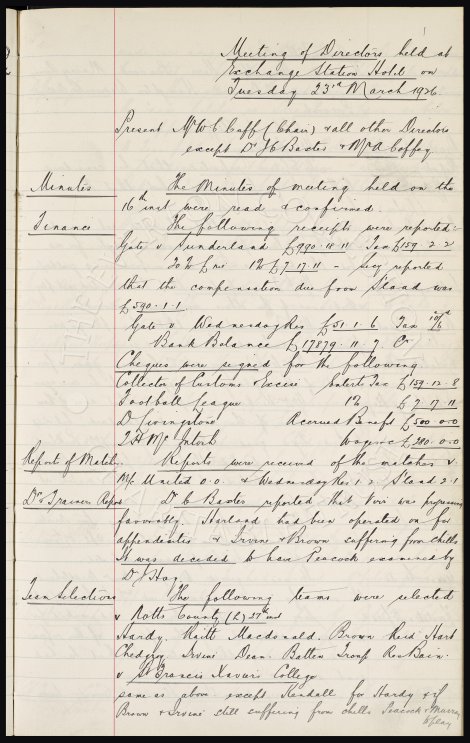 Meeting of Directors held at
Exchange Station Hotel on
Tuesday 23rd March 1926
Present Mr W C Cuff (Chair) & all other Directors
except Dr J C Baxter & Mr A Coffey
Minutes
The Minutes of meeting held on the
16th inst were read & confirmed.
Finance
The following receipts were reported:-
Gate v Sunderland £990.18.11 Tax £159.2.2
To F. L 1% £7.17.11 - Secy reported
that the compensation due from S'land was
£590.1.1.
Gate v Wednesday Res £51.1.6 Tax 10/6
Bank Balance £17879.11.7 Cr
Cheques were signed for the following
Collector of Customs & Excise Entert Tax £159.12.8
Football League 1% £7.17.11
D Livingstone Accrued Benefit £500.0.0
T H McIntosh Wages £280.0.0
Report of Matches
Reports were received of the matches v
M/c United 0.0. & Wednesday Res 1.2 S'land 2.1
Dr & Trainers Report
Dr Baxter reported that Virr was progressing
favourably. Harland had been operated on for
appendicitis & Irvine & Brown suffering from chills
It was decided to have Peacock examined by
Dr Hay
Team Selections
The following teams were selected
v Notts County (L) 27th inst
Hardy. Raitt Macdonald. Brown Reid Hart
Chedgzoy. Irvine Dean. Batten Troup Res Bain.
v St Francis Xavier College
same as above except Kendall for Hardy & if
Brown & Irvine still suffering from chills Peacock & Murray
to play